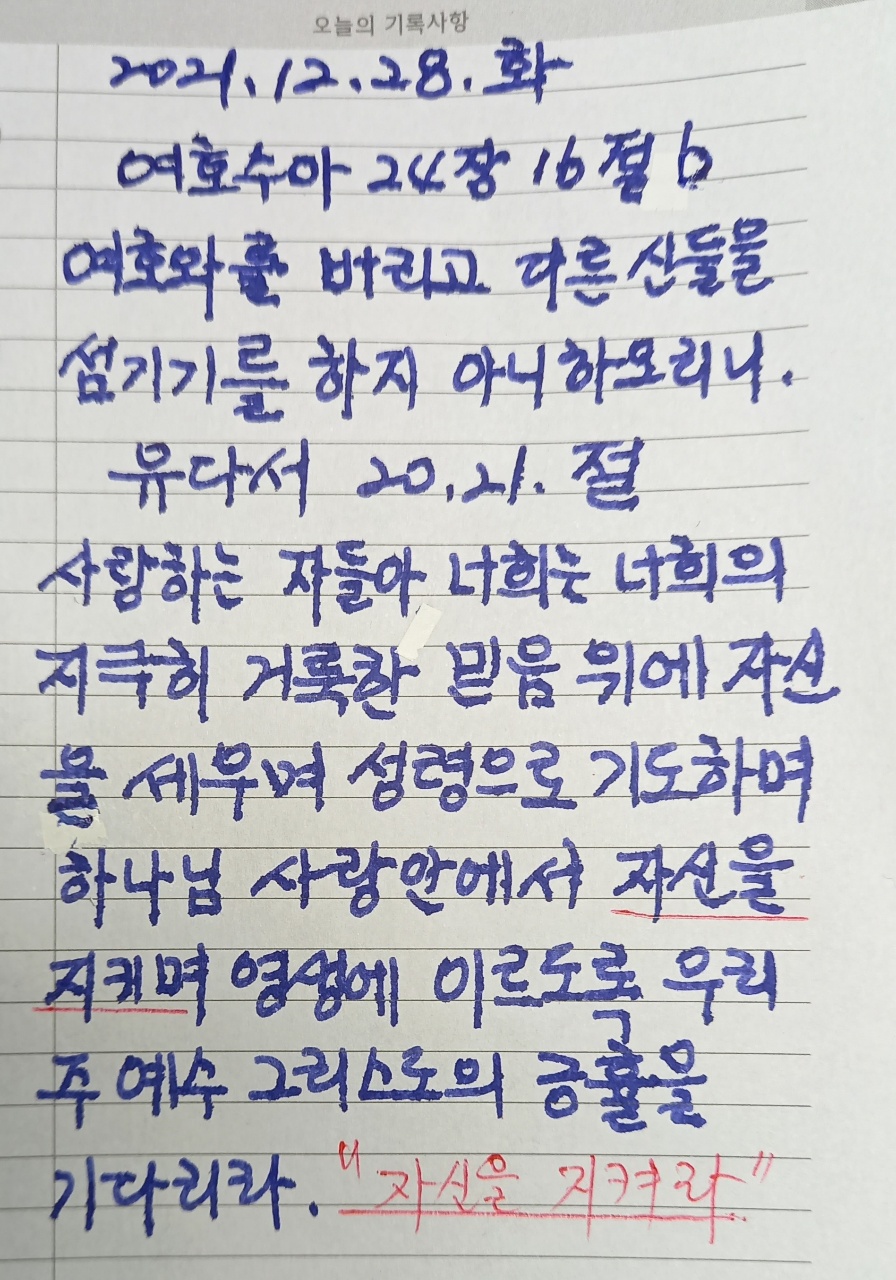 오늘의 기록사항
2021.12.28.화
여호수아 24장 16절 b
여호와를 버리고 다른 신들을
섬기기를 하지 아니하오리니.
유다서 20,21.절
사랑하는 자들아 너희는 너희의
지극히 거룩한 믿음 위에 자신
을 세우며 성령으로 기도하며
하나님 사랑안에서 자신을
지키며 영생에 이르도록 우리
주 예수 그리스도의 긍휼을
기다리라. "자신을 지켜라"